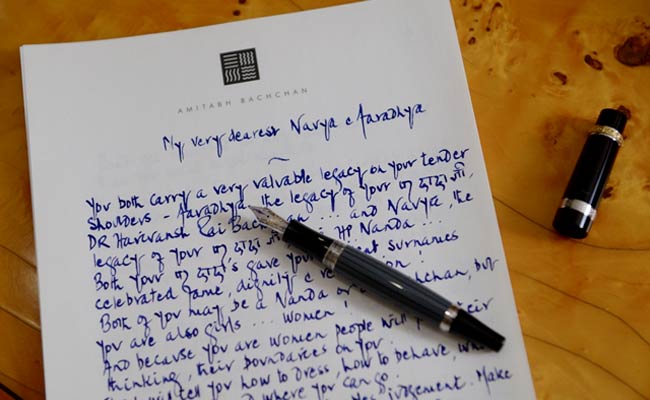 AMITABH BACHCHAN
My very dearest Navya & Aaradhya
You both carry a very valuable legacy on your tender
shoulders - Aaradhya, the legacy of your पर दादाजी,
DR Harivansh Rai Bach an ... and Navya, the
legacy of your पर दादाजी HP Nanda ...
Both your पर दादाजी's gave your surnames
celebrated fame, dignity &
Both of you may be a Nanda or a chan, but
you are also girls ... women!
And because you are women people will their
thinking, their boundaries on you.
They will tell you how to dress, how to behave,
where you can go.
judgement. Make